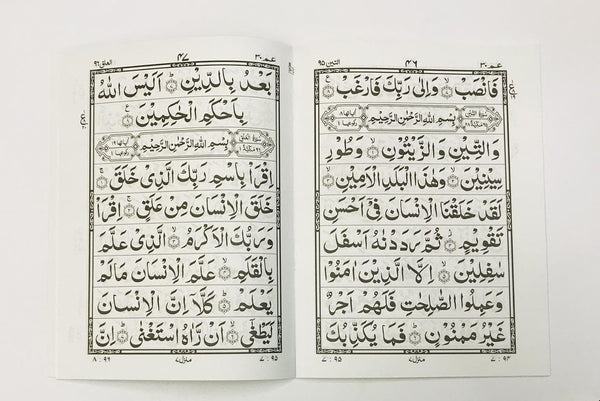 عـمّ ٣٠
٤٦
التين ٩٥
فَانْصَبْ ۙ﴿٧﴾ وَاِلٰى رَبِّكَ فَارْغَبْ ﴿٨﴾
سورة التين
بِسْمِ اللّٰهِ الرَّحْمٰنِ الرَّحِيْمِ
وَالتِّيْنِ وَالزَّيْتُوْنِ ۙ﴿١﴾ وَطُوْرِ
سِيْنِيْنَ ۙ﴿٢﴾ وَهٰذَا الْبَلَدِ الْاَمِيْنِ ۙ﴿٣﴾
لَقَدْ خَلَقْنَا الْاِنْسَانَ فِىْٓ اَحْسَنِ
تَقْوِيْمٍ ۫﴿٤﴾ ثُمَّ رَدَدْنٰهُ اَسْفَلَ
سٰفِلِيْنَ ۙ﴿٥﴾ اِلَّا الَّذِيْنَ اٰمَنُوْا
وَعَمِلُوا الصّٰلِحٰتِ فَلَهُمْ اَجْرٌ
غَيْرُ مَمْنُوْنٍ ؕ﴿٦﴾ فَمَا يُكَذِّبُكَ
٧ : ٩٤
منزل ٧
٧ : ٩٥
عـمّ ٣٠
٤٧
العلق ٩٦
بَعْدُ بِالدِّيْنِ ؕ﴿٧﴾ اَلَيْسَ اللّٰهُ
بِاَحْكَمِ الْحٰكِمِيْنَ ﴿٨﴾
سورة العلق
بِسْمِ اللّٰهِ الرَّحْمٰنِ الرَّحِيْمِ
اِقْرَاْ بِاسْمِ رَبِّكَ الَّذِىْ خَلَقَ ۚ﴿١﴾
خَلَقَ الْاِنْسَانَ مِنْ عَلَقٍ ۚ﴿٢﴾ اِقْرَاْ
وَرَبُّكَ الْاَكْرَمُ ۙ﴿٣﴾ الَّذِىْ عَلَّمَ
بِالْقَلَمِ ۙ﴿٤﴾ عَلَّمَ الْاِنْسَانَ مَا لَمْ
يَعْلَمْ ؕ﴿٥﴾ كَلَّاۤ اِنَّ الْاِنْسَانَ
لَيَطْغٰٓى ۙ﴿٦﴾ اَنْ رَّاٰهُ اسْتَغْنٰى ؕ﴿٧﴾ اِنَّ
٧ : ٩٥
منزل ٧
٨ : ٩٦